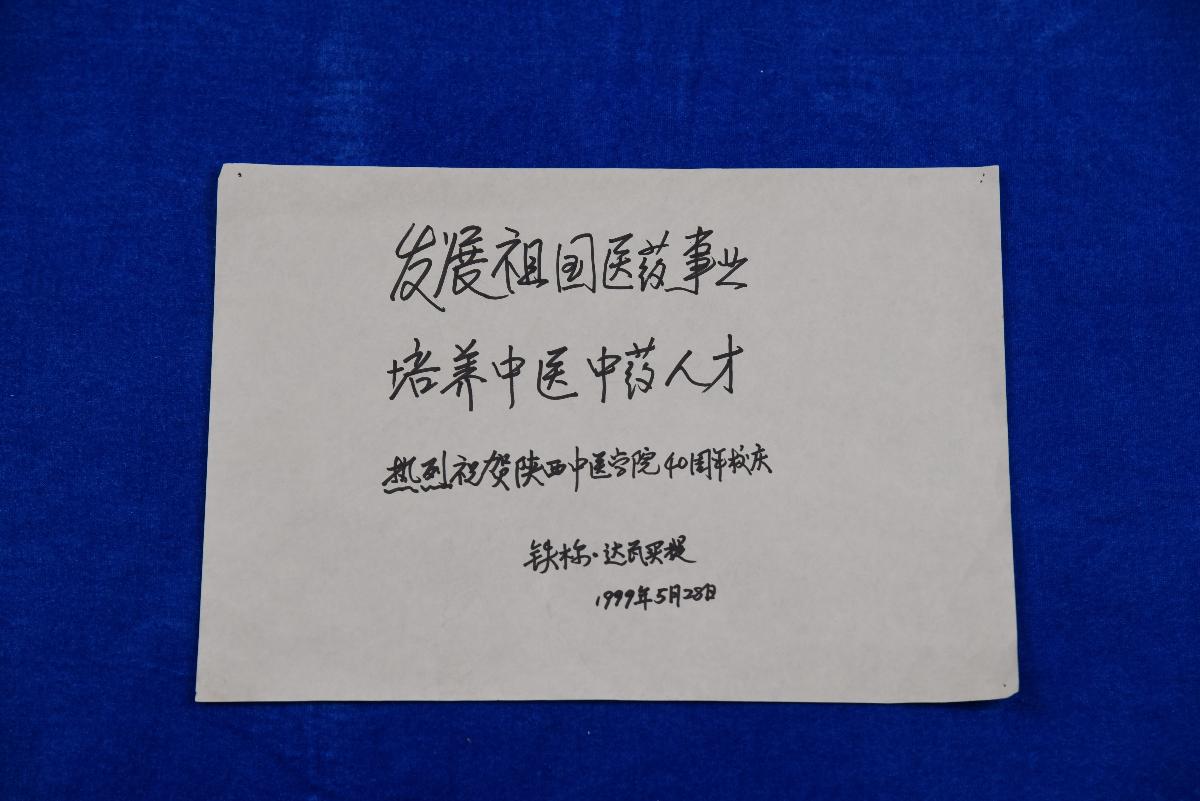 发展祖国医药事业
培养中医中药人才
热烈祝贺陕西中医学院40周年校庆
铁木尔·达瓦买提
1999年5月28日